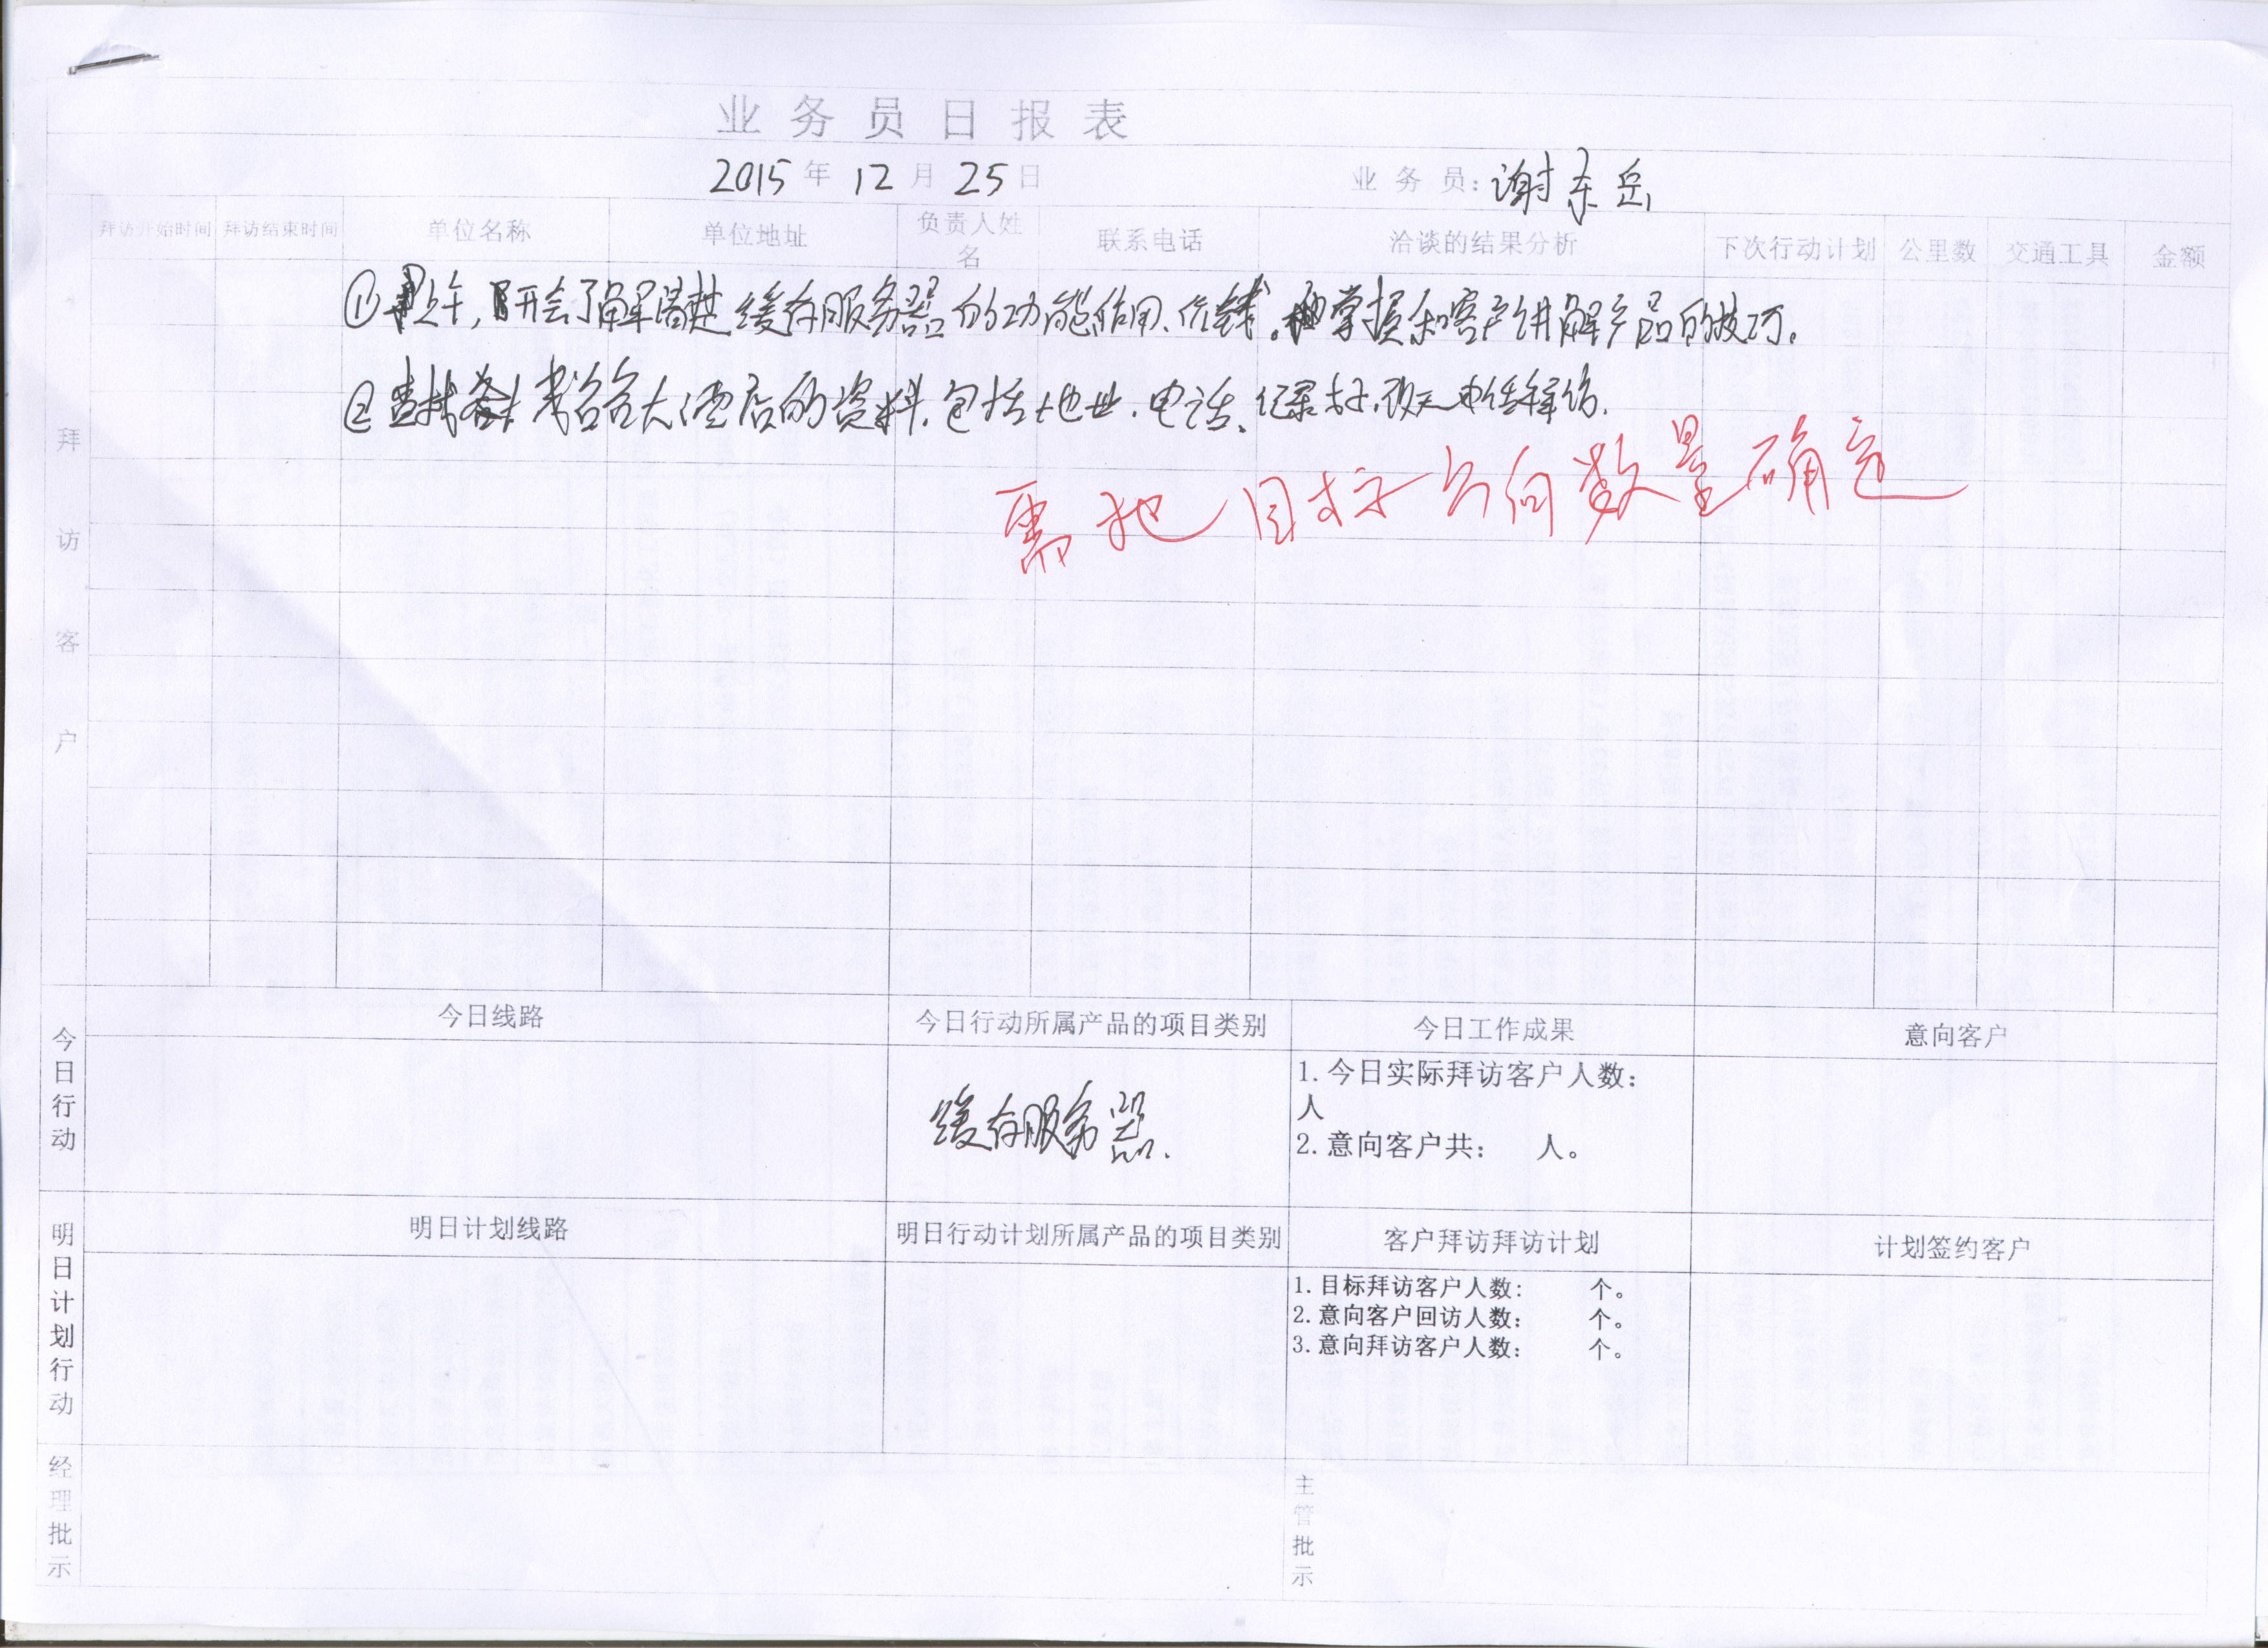 业务员日报表
2015年12月25日 业务员:谢东岳
拜访开始时间 拜访结束时间 单位名称 单位地址 负责人姓名 联系电话 洽谈的结果分析 下次行动计划 公里数 交通工具 金额
拜访客户
①上午,开会了解清楚缓存服务器的功能作用、价钱。掌握和客户讲解产品的技巧。
②查找茂名各大酒店的资料,包括地址、电话、记录好,改天
需把目标方向数量确定
今日行动
今日线路 今日行动所属产品的项目类别 今日工作成果 意向客户
缓存服务器.
1.今日实际拜访客户人数:
人
2.意向客户共: 人。
明日计划行动
明日计划线路 明日行动计划所属产品的项目类别 客户拜访拜访计划 计划签约客户
1.目标拜访客户人数: 个。
2.意向客户回访人数: 个。
3.意向拜访客户人数: 个。
经理批示 主管批示